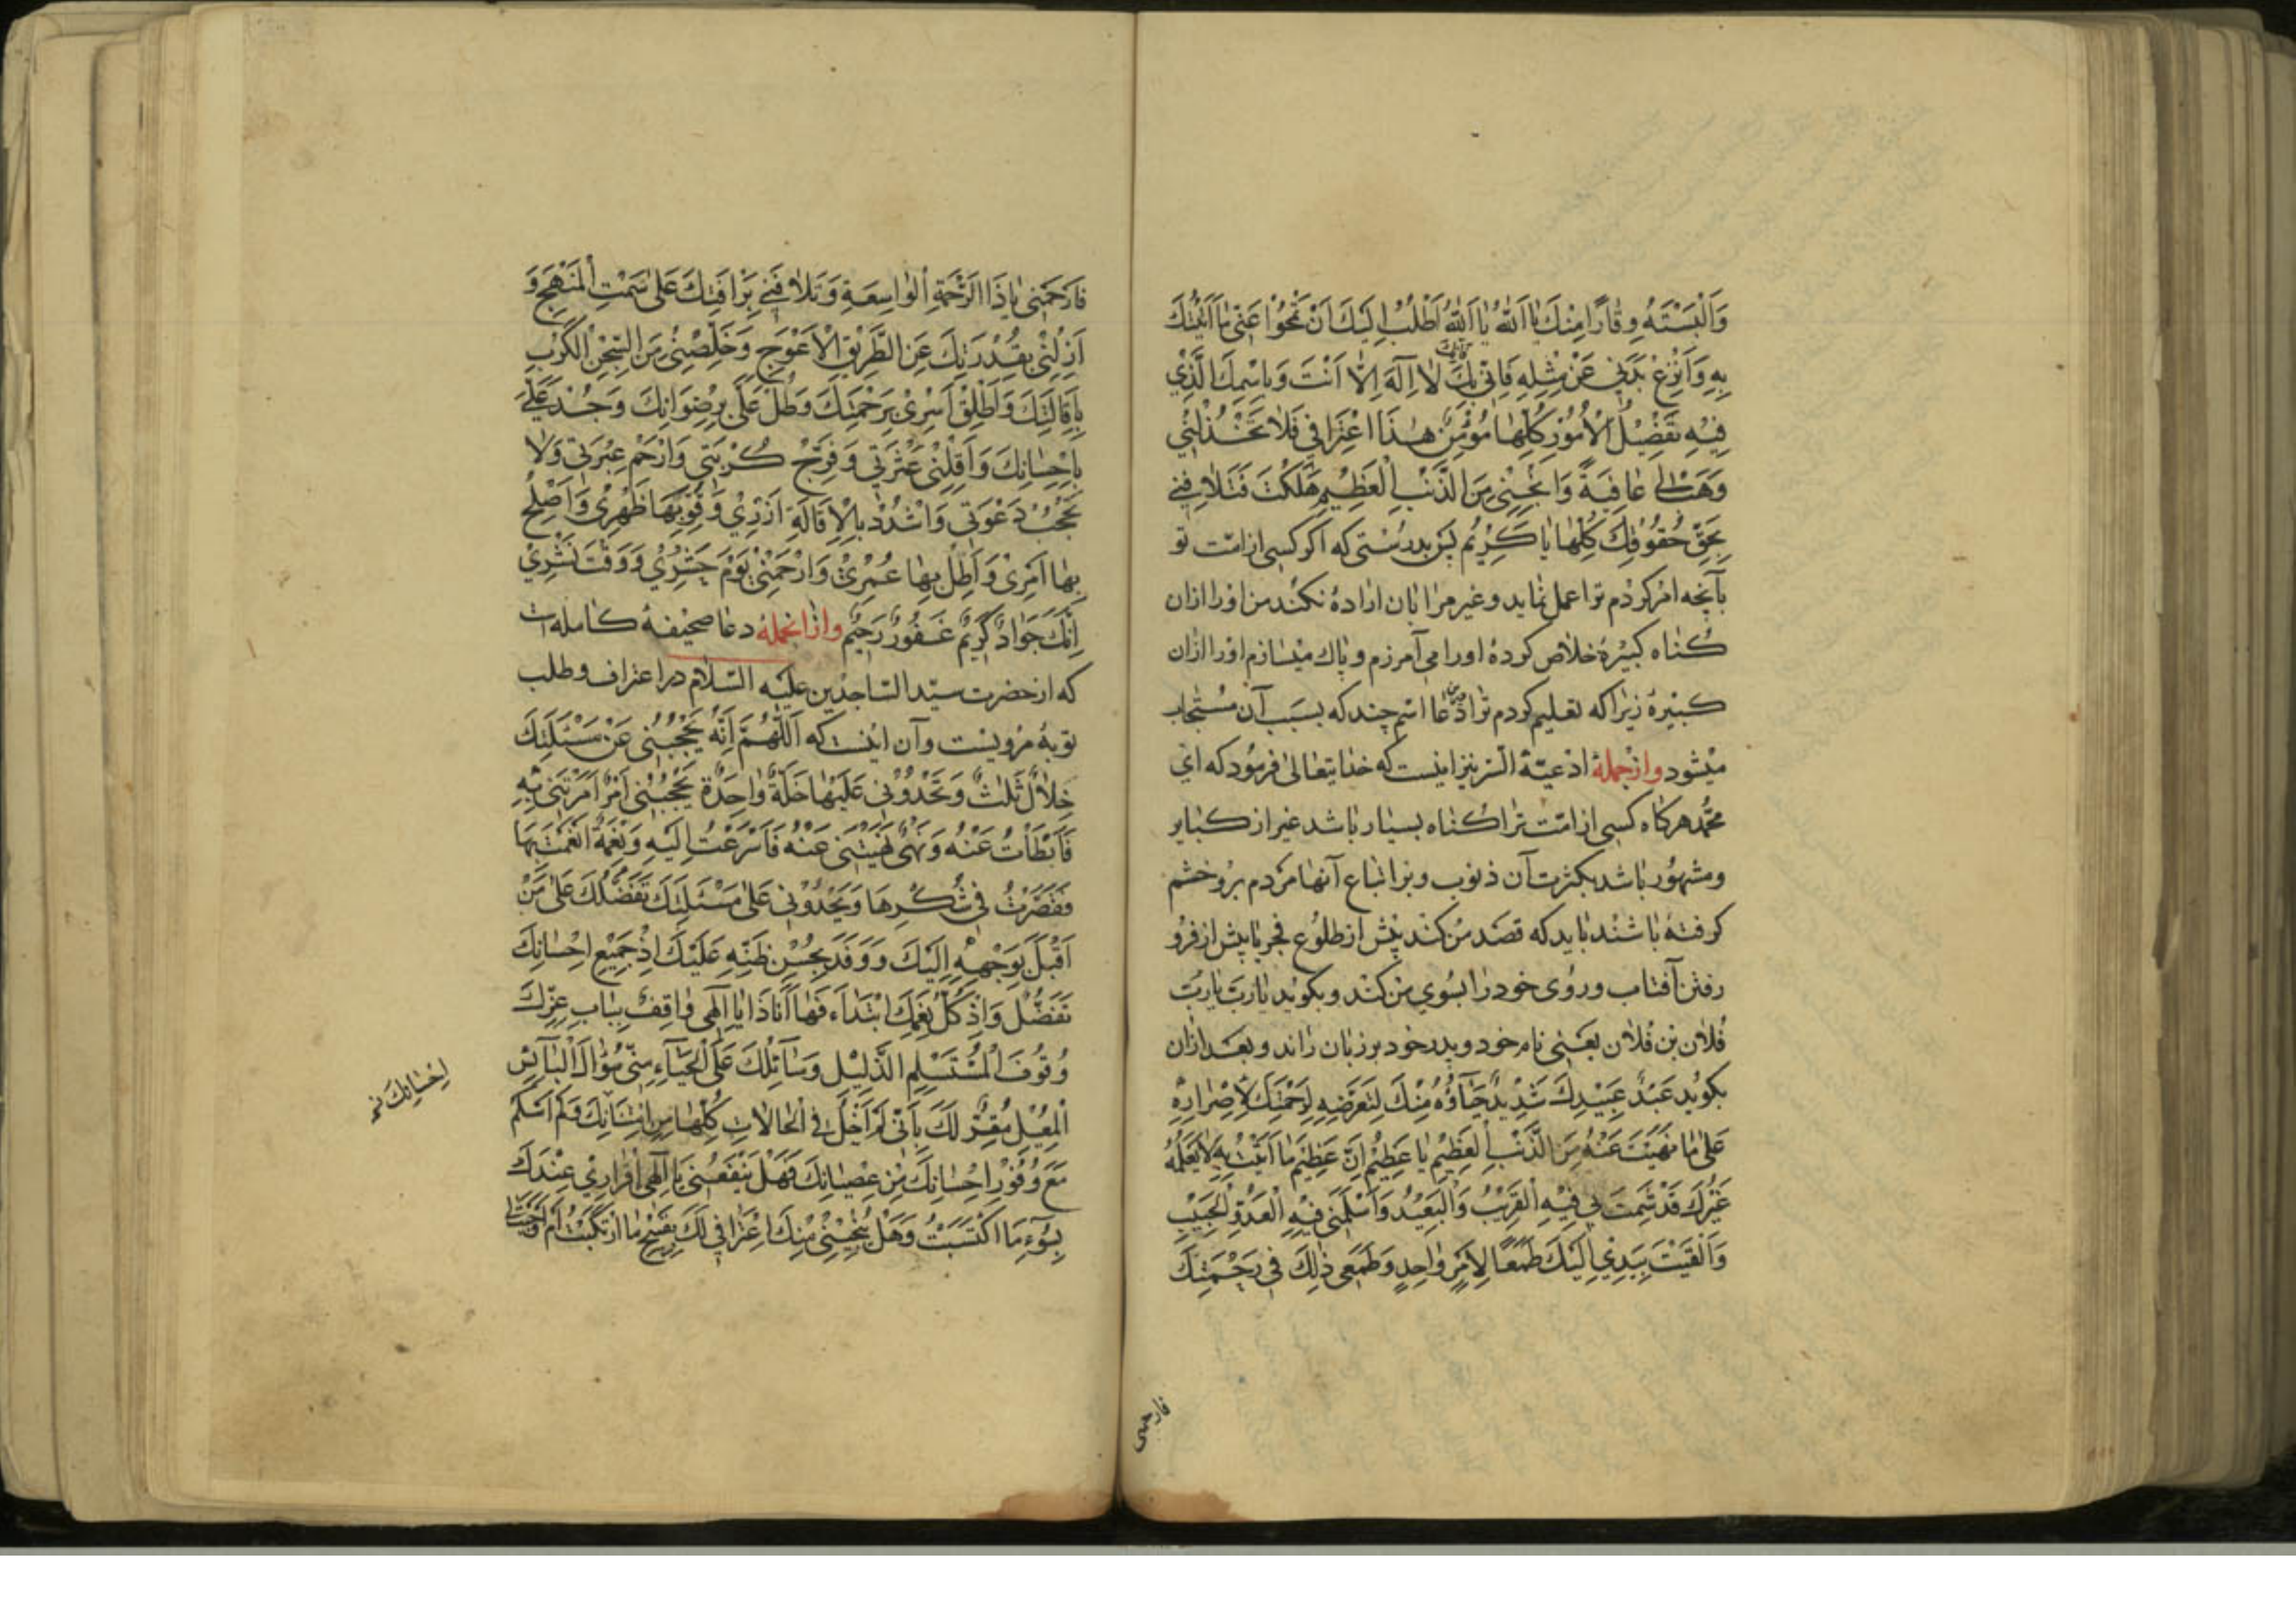 وَاَلْبَسْتَهُ وِقٰارًا مِنْكَ يٰا اَللّٰهُ يٰا اَللّٰهُ اَطْلُبُ اِلَيْكَ اَنْ تَمْحُوَا عَنّى مٰا اَتَيْتُكَ
بِهِ وَاَنْزِعْ بَدَنى عَنْ مِثْلِهِ فَاِنّى بِكَ لاٰ اِلٰهَ اِلاّٰ اَنْتَ وَبِاسْمِكَ الَّذِي
فِيْهِ تَفْضِيْلُ الْاُمُوْرِ كُلِّهٰا مُؤْمِنٌ هٰذَا اعْتِرٰافى فَلاٰ تَخْذُلْنِي
وَهَبْ لى عٰافِيَةً وَانْجِنِى مِنَ الذَّنْبِ الْعَظِيْمِ هَلَكْتُ فَتَلاٰفَنِي
بِحَقِّ حُقُوْقِكَ كُلِّهٰا يٰا كَرِيْمُ پس بدرستى كه اكر كسى از امّت تو
بآنچه امر كردم ترا عمل نمايد وغير مرا بآن اراده نكند من اورا ازان
كناه كبيره خلاص كرده اورا مى آمرزم وپاك ميسازم اورا ازان
كبيره زيرا كه تعليم كردم ترا درين دعا اسم چند كه بسبب آن مستجاب
ميشود وازجمله ادعيّهٔ السّر نيز اينست كه خدايتعالى فرمود كه اى
محمّد هركاه كسى از امّت ترا كناه بسيار باشد غير از كباير
ومشهور باشد بكثرت آن ذنوب وبر اتباع آنها مردم برو خشم
كرفته باشند بايد كه قصد من كند پيش از طلوع فجر يا پيش از فرو
رفتن آفتاب وروى خود را بسوي من كند وبكويد يا ربّ يا ربّ
فلان بن فلان يعنى نام خود وپدر خود بر زبان راند وبعد ازان
بكويد عَبْدُ عَبِيْدِكَ شَدِيْدٌ حَيٰآؤُهُ مِنْكَ لِتَعَرُّضِهِ لِرَحْمَتِكَ لِاِصْرٰارِهِ
عَلىٰ مٰا نَهَيْتَ عَنْهُ مِنَ الذَّنْبِ الْعَظِيْمِ يٰا عَظِيْمُ اِنَّ عَظِيْمَ مٰا اَتَيْتُ بِهِ لاٰ يَعْلَمُهُ
غَيْرُكَ قَدْ شَمِتَ بى فِيْهِ الْقَرِيْبُ وَالْبَعِيْدُ وَاَسْلَمَنى فِيْهِ الْعَدُوُّ وَالْحَبِيْبِ
وَاَلْقَيْتُ بِيَدِي اِلَيْكَ طَمَعًا لِاَمْرٍ وٰاحِدٍ وَطَمَعى ذٰلِكَ فى رَحْمَتِكَ
فارحمنى
فَارْحَمْنى يٰا ذَا الرَّحْمَةِ الْوٰاسِعَةِ وَتَلاٰفَنِي بِرَاْفَتِكَ عَلىٰ سَمْتِ الْمَنْهَجِ وَ
اَزِلْنِى بِقُدْرَتِكَ عَنِ الطَّرِيْقِ الْاَعْوَجِ وَخَلِّصْنِى مِنَ السِّجْنِ الْكَرْبِ
بِاِقٰالَتِكَ وَاَطْلِقْ اَسْرِى بِرَحْمَتِكَ وَطُلْ عَلَيَّ بِرِضْوٰانِكَ وَجُدْ عَلَيَّ
بِاِحْسٰانِكَ وَاَقِلْنِى عَثْرَتِي وَفَرِّجْ كُرْبَتى وَارْحَمْ عِبْرَتى وَلاٰ
تَحْجُبْ دَعْوَتى وَاشْدُدْ بِالْاِقٰالَةِ اَزْرِي وَقَوِّ بِهٰا ظَهْرِى وَاَصْلِحْ
بِهٰا اَمْرِى وَاَطِلْ بِهٰا عُمْرِى وَارْحَمْنِى يَوْمَ حَشْرِي وَوَقْتَ نَشْرِي
اِنَّكَ جَوٰادٌ كَرِيْمٌ غَفُورٌ رَحِيْمٌ وازانجمله دعا صحيفهٔ كامله است
كه از حضرت سيّد السّاجدين عليه السّلام در اعتراف وطلب
توبه مرويست وآن اينست كه اَللّٰهُمَّ اِنَّهُ يَحْجُبُنى عَنْ مَسْئَلَتِكَ
خِلاٰلٌ ثَلٰثٌ وَتَحْدُوْنى عَلَيْهٰا خَلَّةٌ وٰاحِدَةٌ يَحْجُبُنى اَمْرٌ اَمَرْتَنى بِهِ
فَاَبْطَاْتُ عَنْهُ وَنَهْىٌ نَهَيْتَنى عَنْهُ فَاَسْرَعْتُ اِلَيْهِ وَنِعْمَةٌ اَنْعَمْتَ بِهَا
فَقَصَّرْتُ فى شُكْرِهَا وَيَحْدُوْنى عَلىٰ مَسْئَلَتِكَ تَفَضُّلُكَ عَلىٰ مَنْ
اَقْبَلَ بِوَجْهِهِ اِلَيْكَ وَوَفَدَ بِحُسْنِ ظَنِّهِ عَلَيْكَ اِذْ جَمِيْعُ اِحْسٰانِكَ
تَفَضُّلٌ وَاِذْ كُلُّ نِعَمِكَ ابْتِدٰاءٌ فَهٰا اَنَا ذَا يٰا اِلٰهى وٰاقِفٌ بِبٰابِ عِزِّكَ
وُقُوْفَ الْمُسْتَسْلِمِ الذَّلِيْلِ وَسٰآئِلُكَ عَلَى الْحَيٰآءِ مِنّى سُؤٰالَ الْبٰآئِسِ
الْمُعِيْلِ مُقِرٌّ لَكَ بِاَنّى لَمْ اَخْلُ فى الْحٰالاٰتِ كُلِّهٰا مِنِ امْتِنٰانِكَ وَلَمْ اَسْلَمْ
اِحْسٰانِكَ
مَعَ وُفُوْرِ اِحْسٰانِكَ مِنْ عِصْيٰانِكَ فَهَلْ يَنْفَعُنى يٰا اِلٰهى اِقْرٰارِي عِنْدَكَ
بِسُوٓءِ مَا اكْتَسَبْتُ وَهَلْ يُنْجِيْنِى مِنْكَ اعْتِرٰافى لَكَ بِقَبِيْحِ مٰا ارْتَكَبْتُ اَمْ